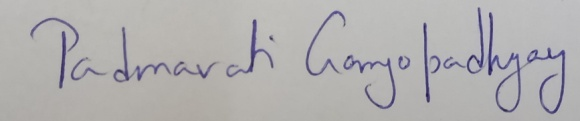 Padmavati Gangopadhyay